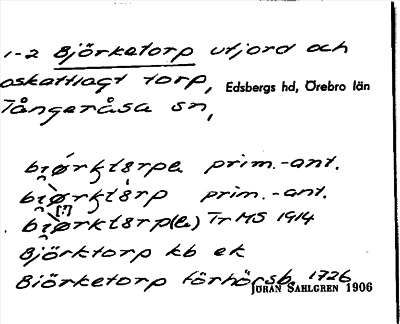 1-2 Björketorp utjord och
oskattlagt torp, Edsbergs hd, Örebro län
Tångeråsa sn,
prim.-ant.
prim.-ant.
Tr MS 1914
Björktorp kb ek
Biörketorp förhörsb. 1726
JÖRAN SAHLGREN 1906